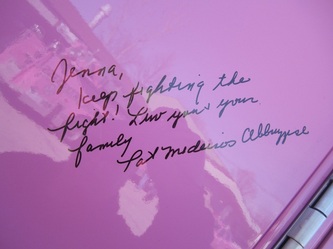 Jenna,
keep fighting the
fight! Luv you & your
family
Pat Medeiros Abbruzese